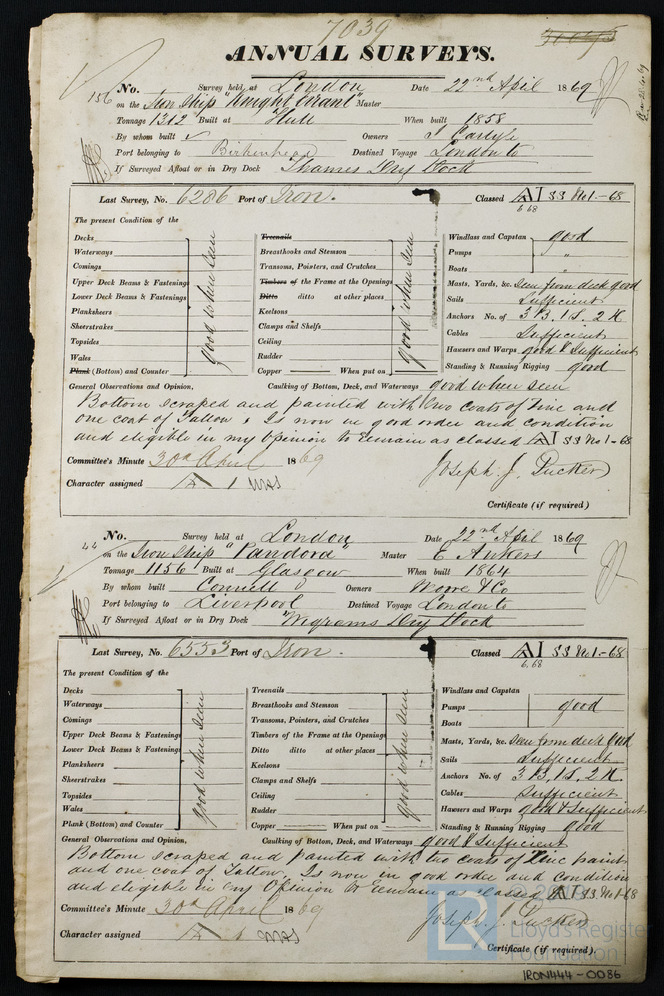 7039
ANNUAL SURVEYS.
156 No. Survey held at London Date 22nd April 1869
on the Iron Ship "Knight Errant" Master
Tonnage 1312 Built at Hull When built 1858
By whom built ✓ Owners J Carlyle
Port belonging to Birkenhead Destined Voyage London to
If Surveyed Afloat or in Dry Dock Thames Dry Dock
Last Survey, No. 6286 Port of Iron. Classed A1 SS No1.-68
6.68
The present Condition of the
Decks
Waterways
Comings
Upper Deck Beams & Fastenings
Lower Deck Beams & Fastenings
Planksheers
Sheerstrakes
Topsides
Wales
Plank (Bottom) and Counter
good when seen
Treenails
Breasthooks and Stemson
Transoms, Pointers, and Crutches
Timbers of the Frame at the Openings
Ditto ditto at other places
Keelsons
Clamps and Shelfs
Ceiling
Rudder
Copper When put on
good when seen
Windlass and Capstan good
Pumps "
Boats "
Masts, Yards, &c. seen from deck good
Sails Sufficient
Anchors No. of 3 B. 1 S. 2 K.
Cables Sufficient
Hawsers and Warps good & Sufficient
Standing & Running Rigging good
General Observations and Opinion, Caulking of Bottom, Deck, and Waterways good when seen
Bottom scraped and painted with two coats of Zinc and
one coat of Tallow, Is now in good order and condition
and eligible in my opinion to remain as classed A1 SS No1-68
Committee's Minute 30d April 1869
Joseph J. Tucker
Character assigned A 1
Certificate (if required)
44 No. Survey held at London Date 22nd April 1869
on the Iron Ship "Pandora" Master E Ankers
Tonnage 1156 Built at Glasgow When built 1864
By whom built Connell Owners Moore & Co
Port belonging to Liverpool Destined Voyage London to
If Surveyed Afloat or in Dry Dock Wigrams Dry Dock
Last Survey, No. 6553 Port of Iron. Classed A1 SS No1.-68
6.68
The present Condition of the
Decks
Waterways
Comings
Upper Deck Beams & Fastenings
Lower Deck Beams & Fastenings
Planksheers
Sheerstrakes
Topsides
Wales
Plank (Bottom) and Counter
good when seen
Treenails
Breasthooks and Stemson
Transoms, Pointers, and Crutches
Timbers of the Frame at the Openings
Ditto ditto at other places
Keelsons
Clamps and Shelfs
Ceiling
Rudder
Copper When put on
good when seen
Windlass and Capstan
Pumps good
Boats
Masts, Yards, &c. seen from deck good
Sails Sufficient
Anchors No. of 3 B. 1 S. 2 K.
Cables Sufficient
Hawsers and Warps good & Sufficient
Standing & Running Rigging good
General Observations and Opinion, Caulking of Bottom, Deck, and Waterways good & Sufficient
Bottom scraped and painted with two coats of Zinc paint
and one coat of Tallow, Is now in good order and condition
and eligible in my Opinion to remain as classed A1 SS No1-68
Committee's Minute 30d April 1869
Joseph J. Tucker
Character assigned A 1
Certificate (if required).
Lloyd's Register
Foundation
IRON444-0086